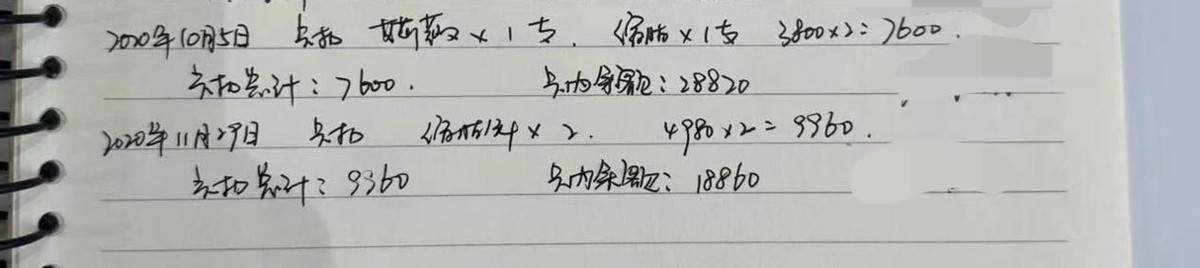 2020年10月5日 卡扣 ×1支. 溶脂×1支 3800×2=7600.
卡扣总计:7600. 卡内余额:28820
2020年11月29日 卡扣 溶脂针×2. 4980×2=9960.
卡扣总计:9960 卡内余额:18860